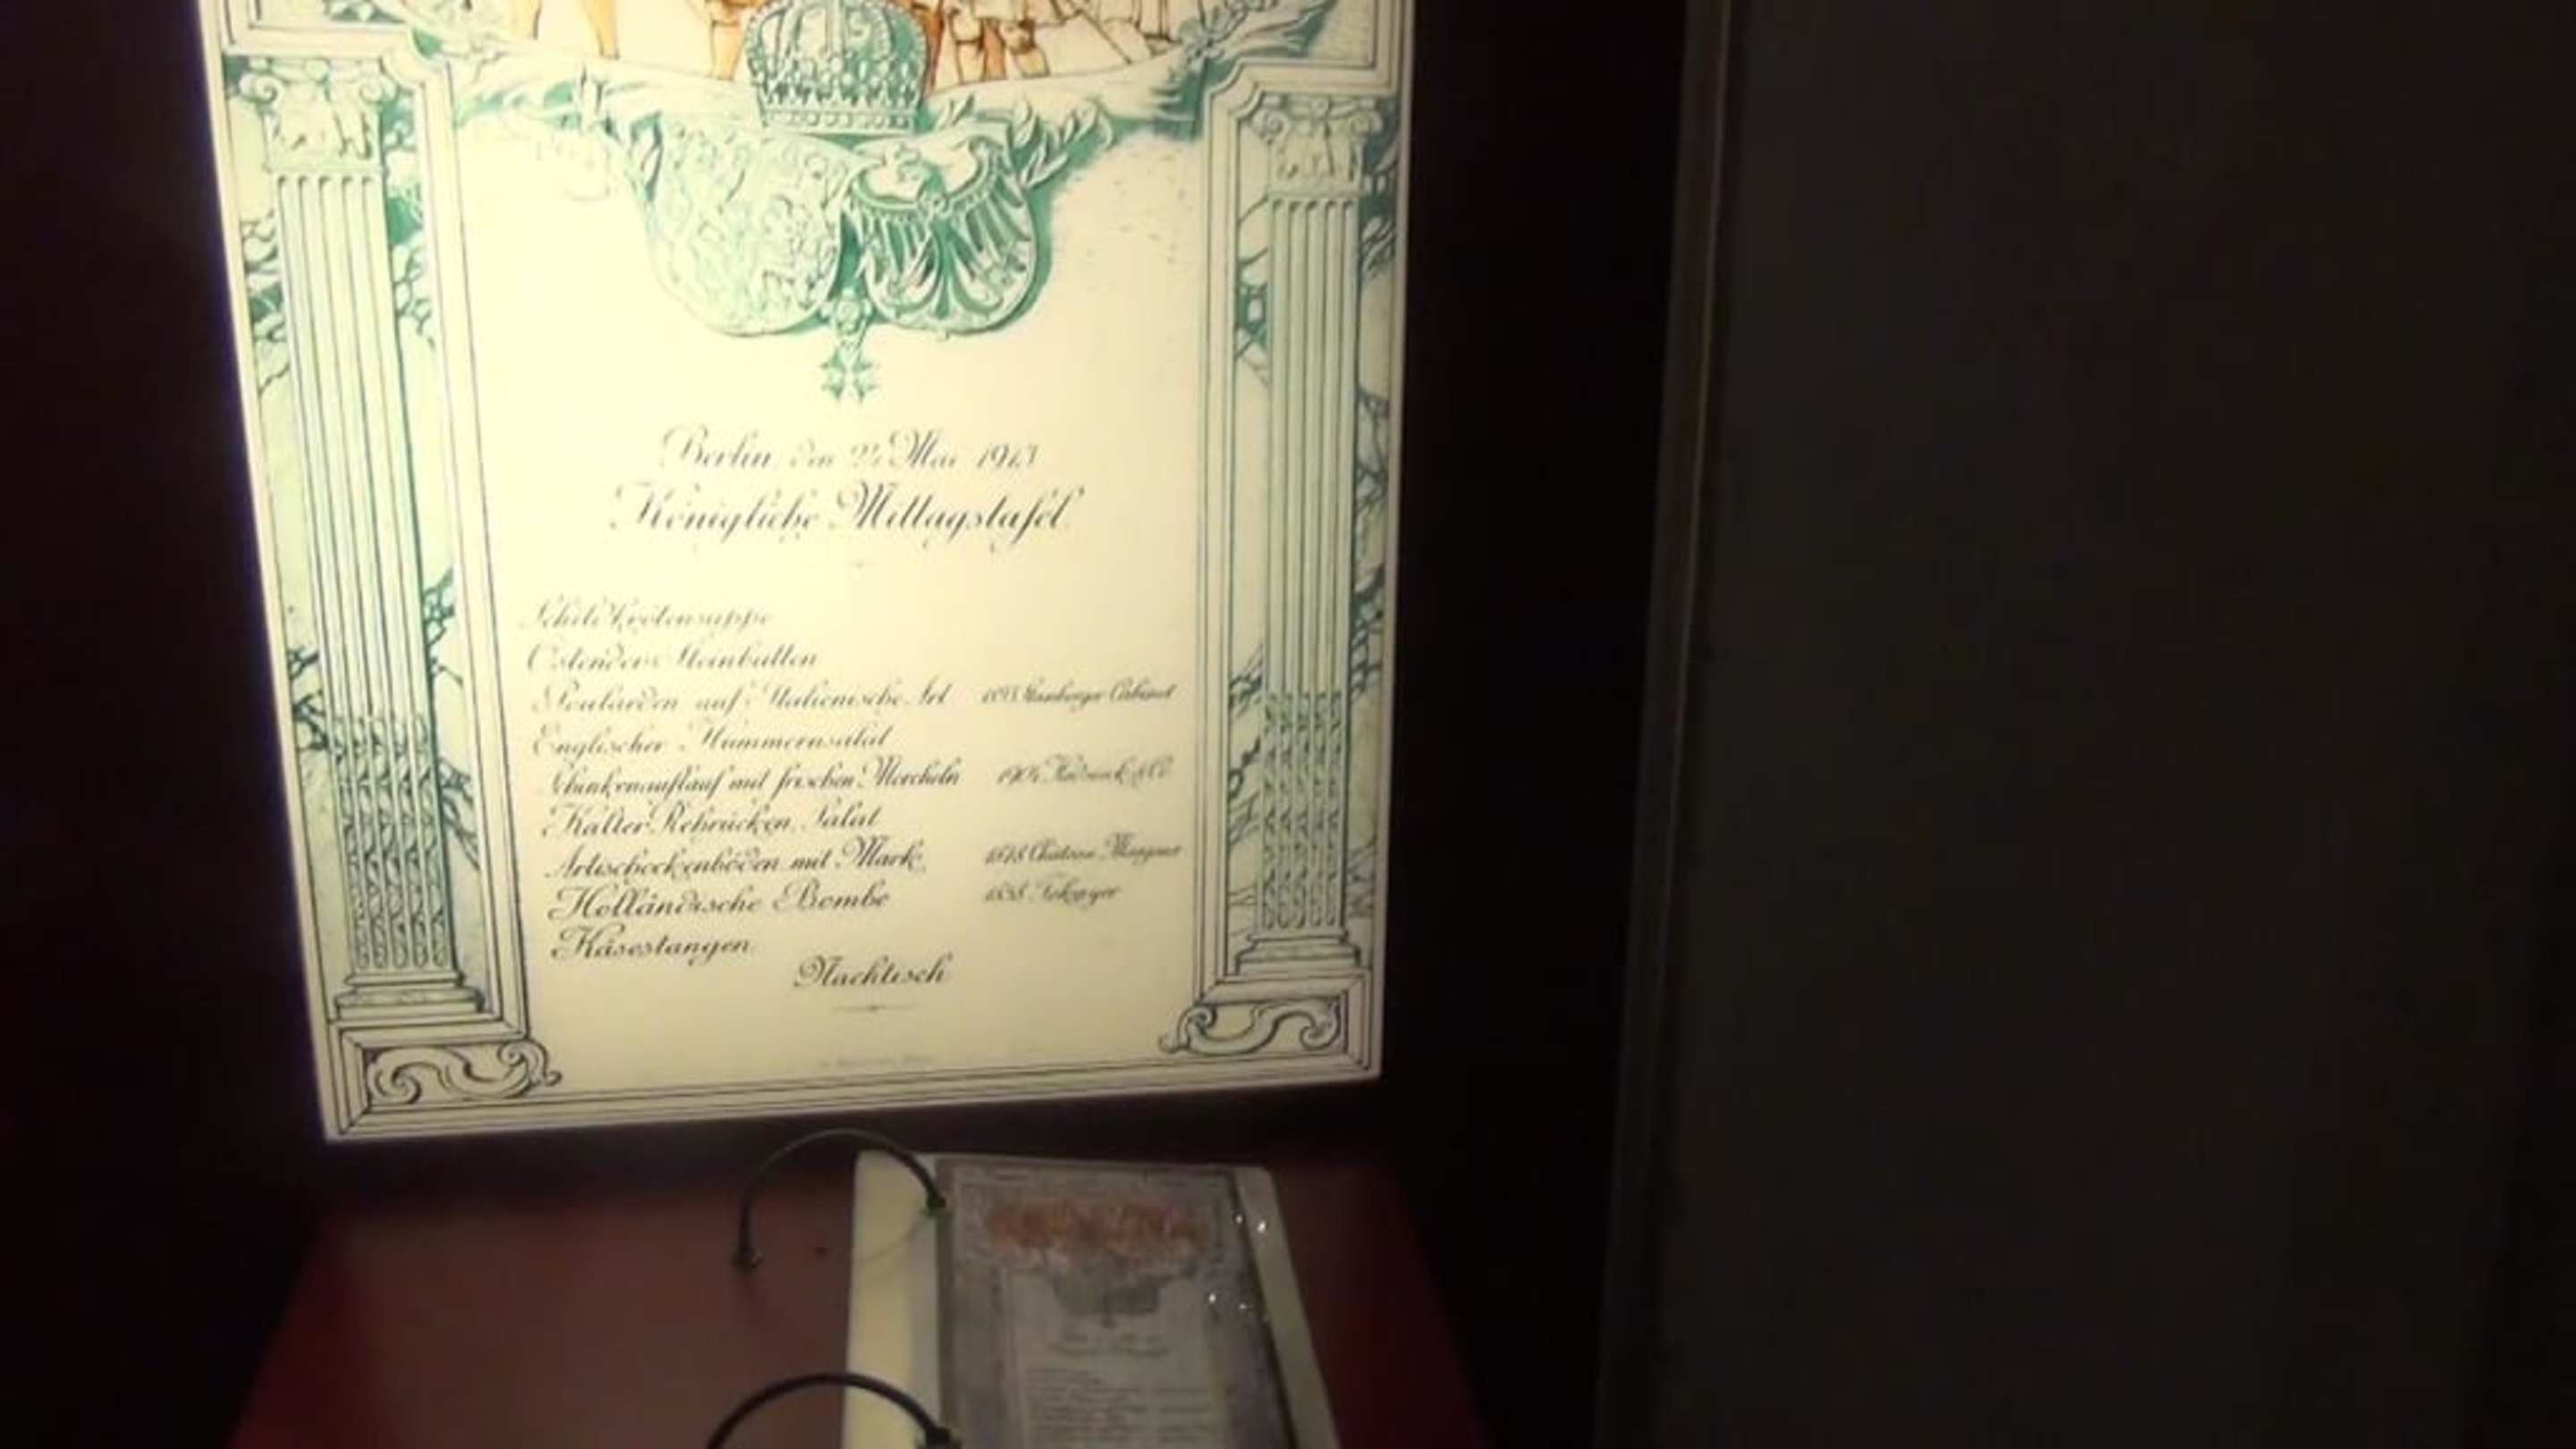 Berlin, den 24 Mai 1913
Königliche Mittagstafel.
Schildkrötensuppe
Ostender Steinbutten
Poularden auf Italienische Art 1893 Steinberger Cabinet
Englischer Hummernsalat
Schinkenauflauf mit frischen Morcheln 1904
Kalter Rehrücken, Salat
Artischockenböden mit Mark. 1878 Chateau Margaux
Holländische Bombe 1858 Tokayer
Käsestangen.
Nachtisch